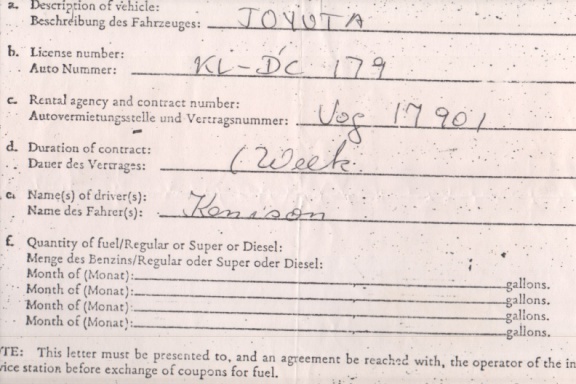 a. Description of vehicle:
Beschreibung des Fahrzeuges: TOYOTA
b. License number:
Auto Nummer: KL-DC 179
c. Rental agency and contract number:
Autovermietungsstelle und Vertragsnummer: Vog 17901
d. Duration of contract:
Dauer des Vertrages: 1 Week
e. Name(s) of driver(s):
Name des Fahrer(s): Kenison
f. Quantity of fuel/Regular or Super or Diesel:
Menge des Benzins/Regular oder Super oder Diesel:
Month of (Monat): gallons.
Month of (Monat): gallons.
Month of (Monat): gallons.
Month of (Monat): gallons.
TE: This letter must be presented to, and an agreement be reached with, the operator of the in
vice station before exchange of coupons for fuel.